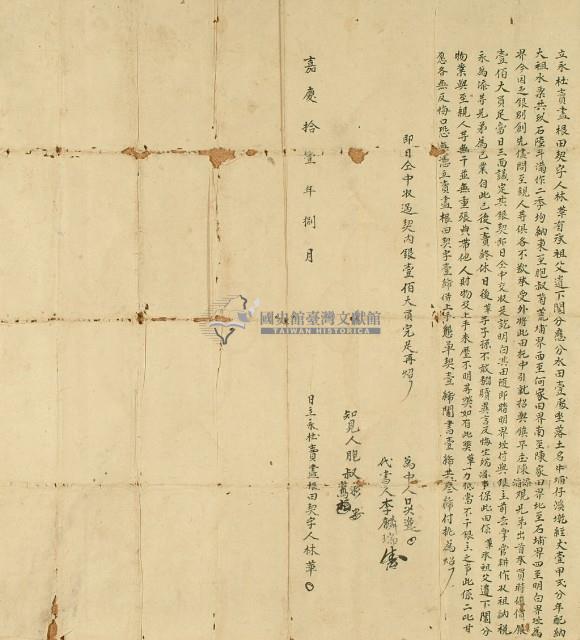 立永杜賣盡根田契字人林華有承祖父遺下鬮分應分水田壹處坐落土名中埔仔溪墘經丈壹甲弍分年配納
大租水粟共玖石陸斗滿作二季均納東至胞叔菊薦埔界西至何家田界南至陳家田界北至石埔界四至明白界為
界今因乏銀別創先儘問至親人等俱各不欲承受外將此田托中引就招與鎮平庄陳 觀兄弟出首承買時值價銀
壹佰大員足當日三面議定其銀契即日仝中交收足訖明白其田隨即踏明界址付與銀主前去掌管耕作收租納稅
永為 等兄弟為己業自此已後一賣終休日後華子子孫不敢翻贖異言反悔生端滋事保此田係華承祖父遺下鬮分
物業與至親人等無干並無重張典掛他人財物及上手來歷不明等獘如有此獘華一力抵當不干銀主之事此係二比甘
忍各無反悔口恐無憑立賣盡根田契字壹紙併上手 單契壹紙鬮書壹紙共叁紙付執為炤
即日仝中收過契內銀壹佰大員完足再炤
嘉慶拾壹年捌月
為中人吳
代書人李麟瑞
知見人胞叔
日立永杜賣盡根田契字人林華
國史館臺灣文獻館
TAIWAN HISTORICA